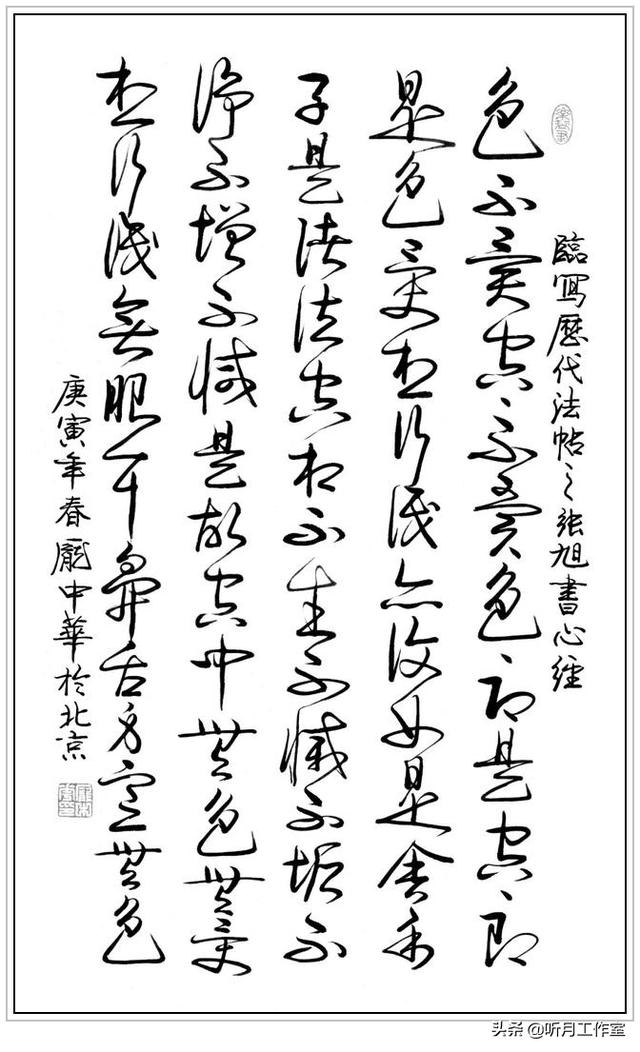 臨寫歷代法帖之張旭書心經
色不異空、不異色、即是空、即
是色受想行識亦復如是舍利
子是諸法空相不生不滅不垢不
淨不增不減是故空中無色無受
想行識無眼耳鼻舌身意無色
庚寅年春龐中華於北京
头条 @听月工作室